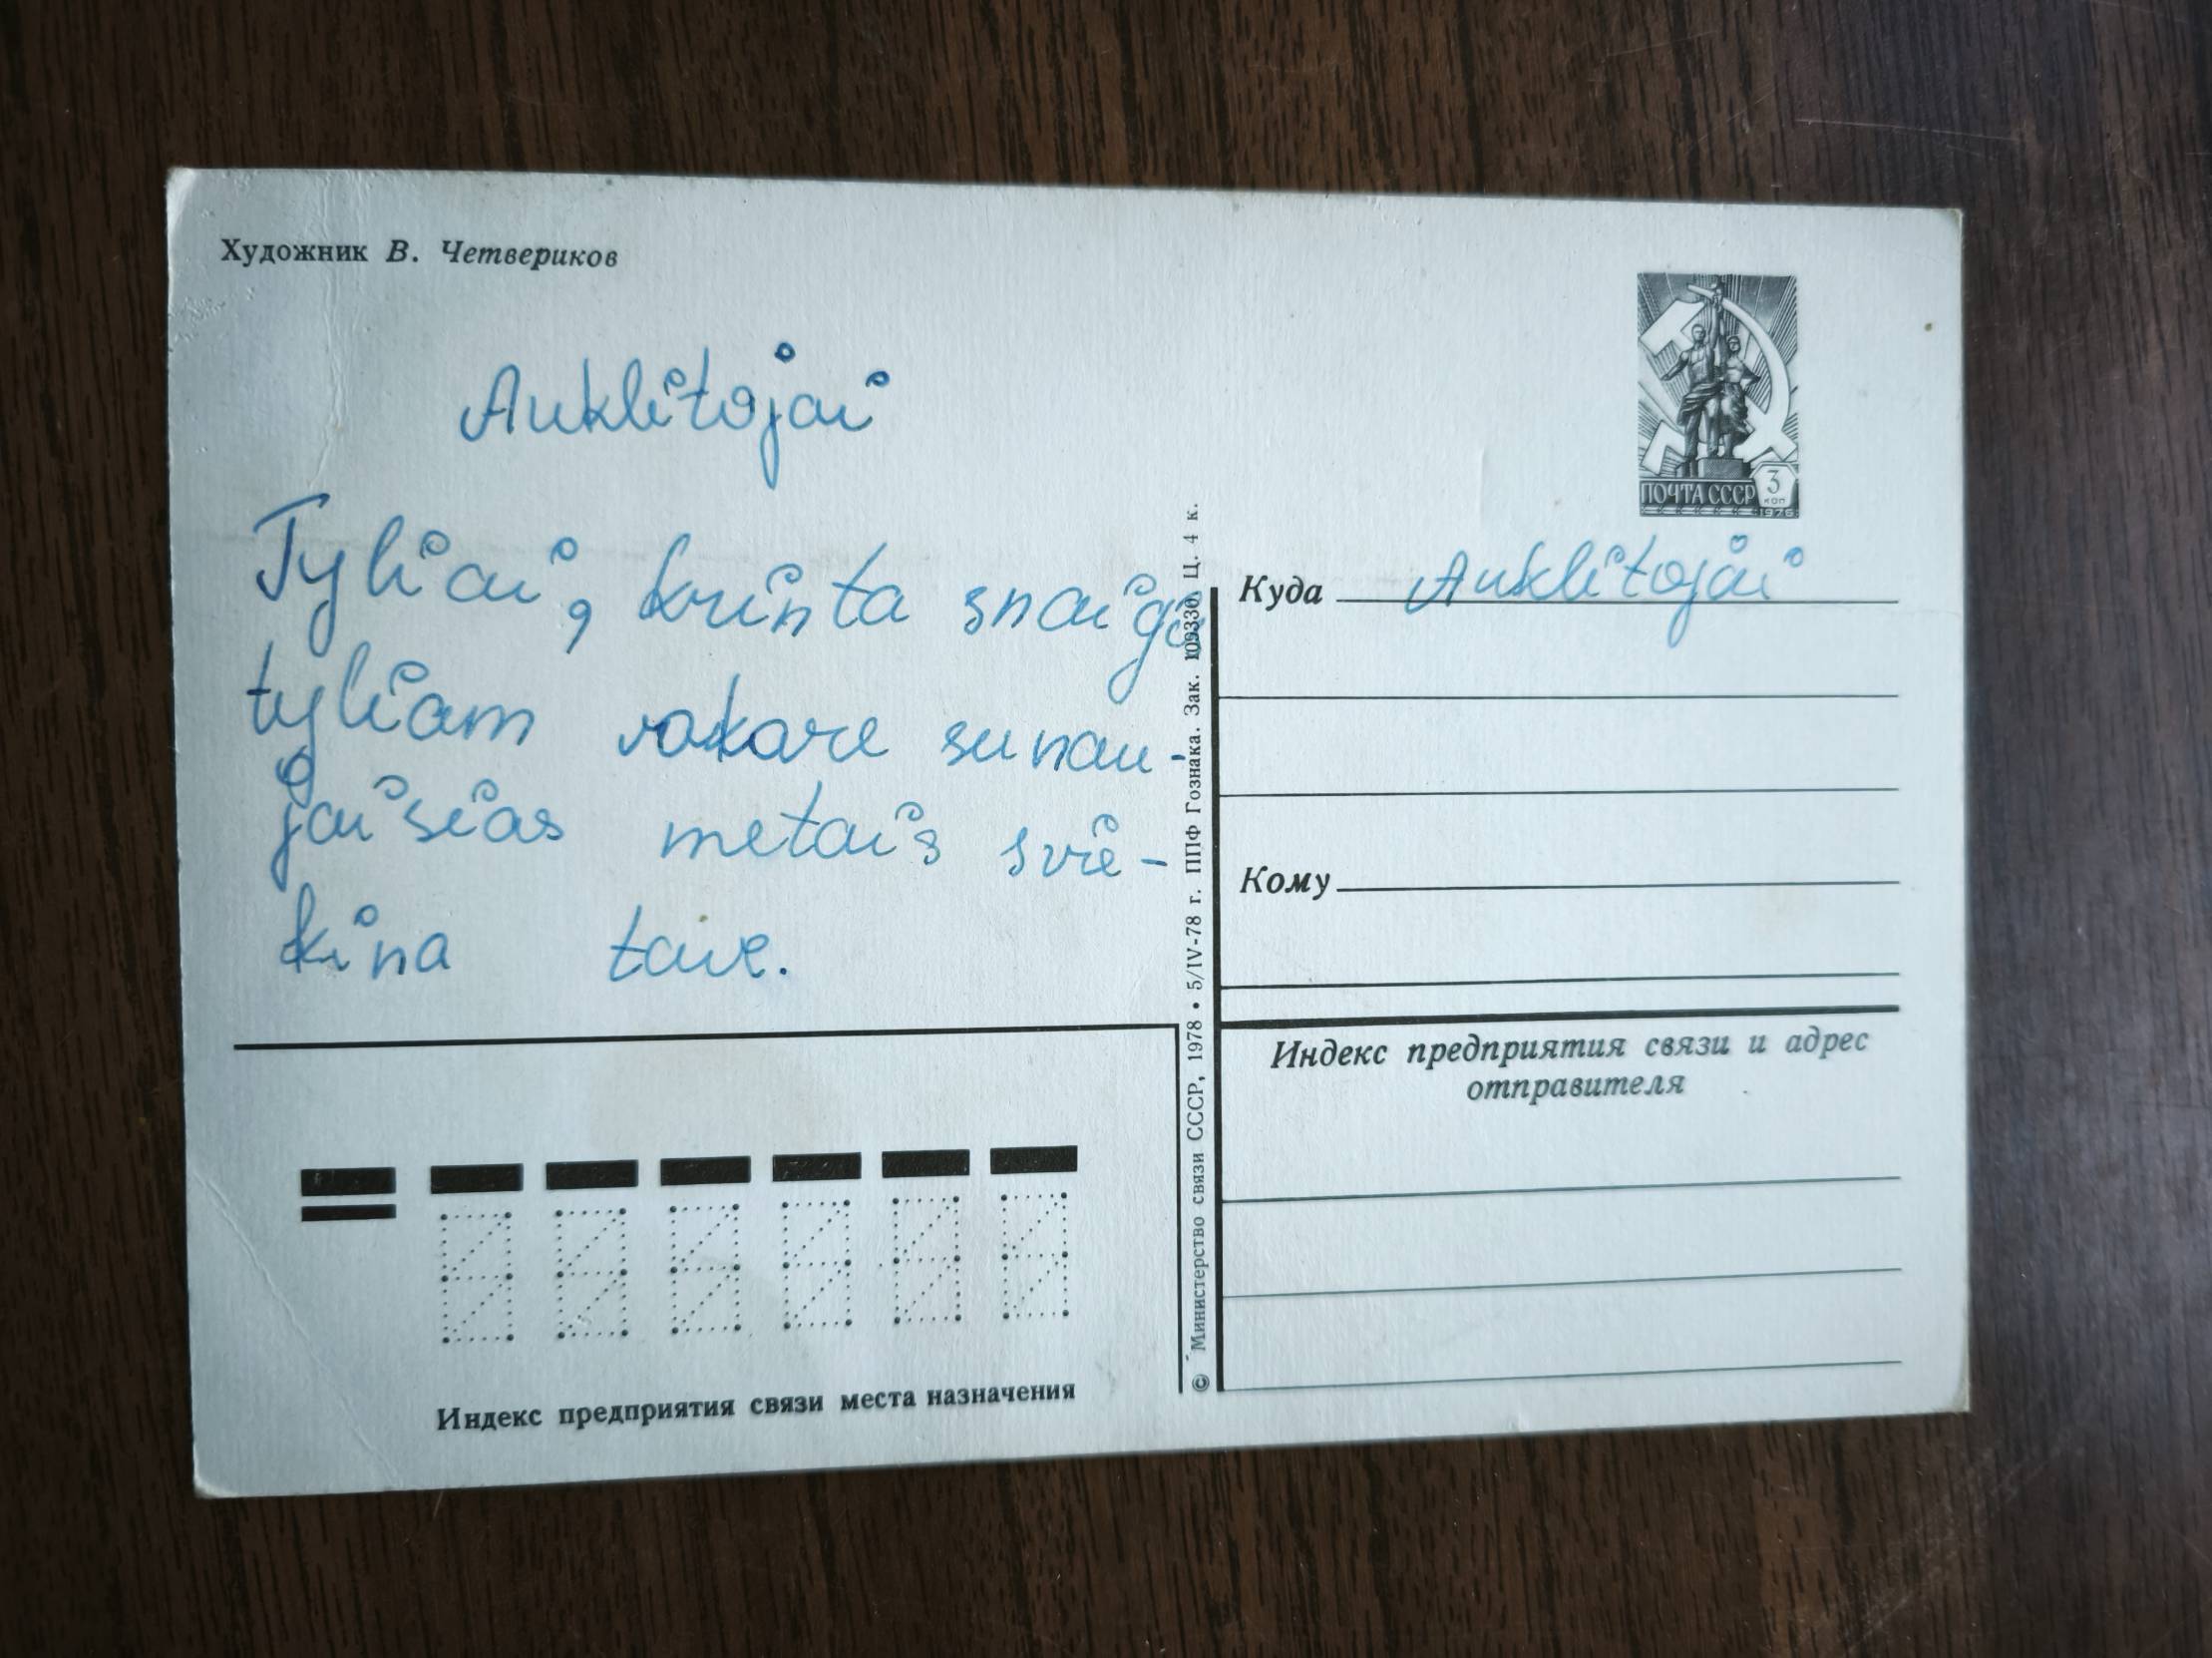 Художник В. Четвериков
Auklitojai
Tyliai, krinta snaiga
tyliam vakare su nau-
jaisias metais svie-
kina tave.
ПОЧТА СССР 3 коп 1976
Куда Auklitojai
Кому
Индекс предприятия связи и адрес
отправителя
Индекс предприятия связи места назначения
© Министерство связи СССР, 1978 • 5/IV-78 г. ППФ Гознака. Зак. Ц. 4 к.